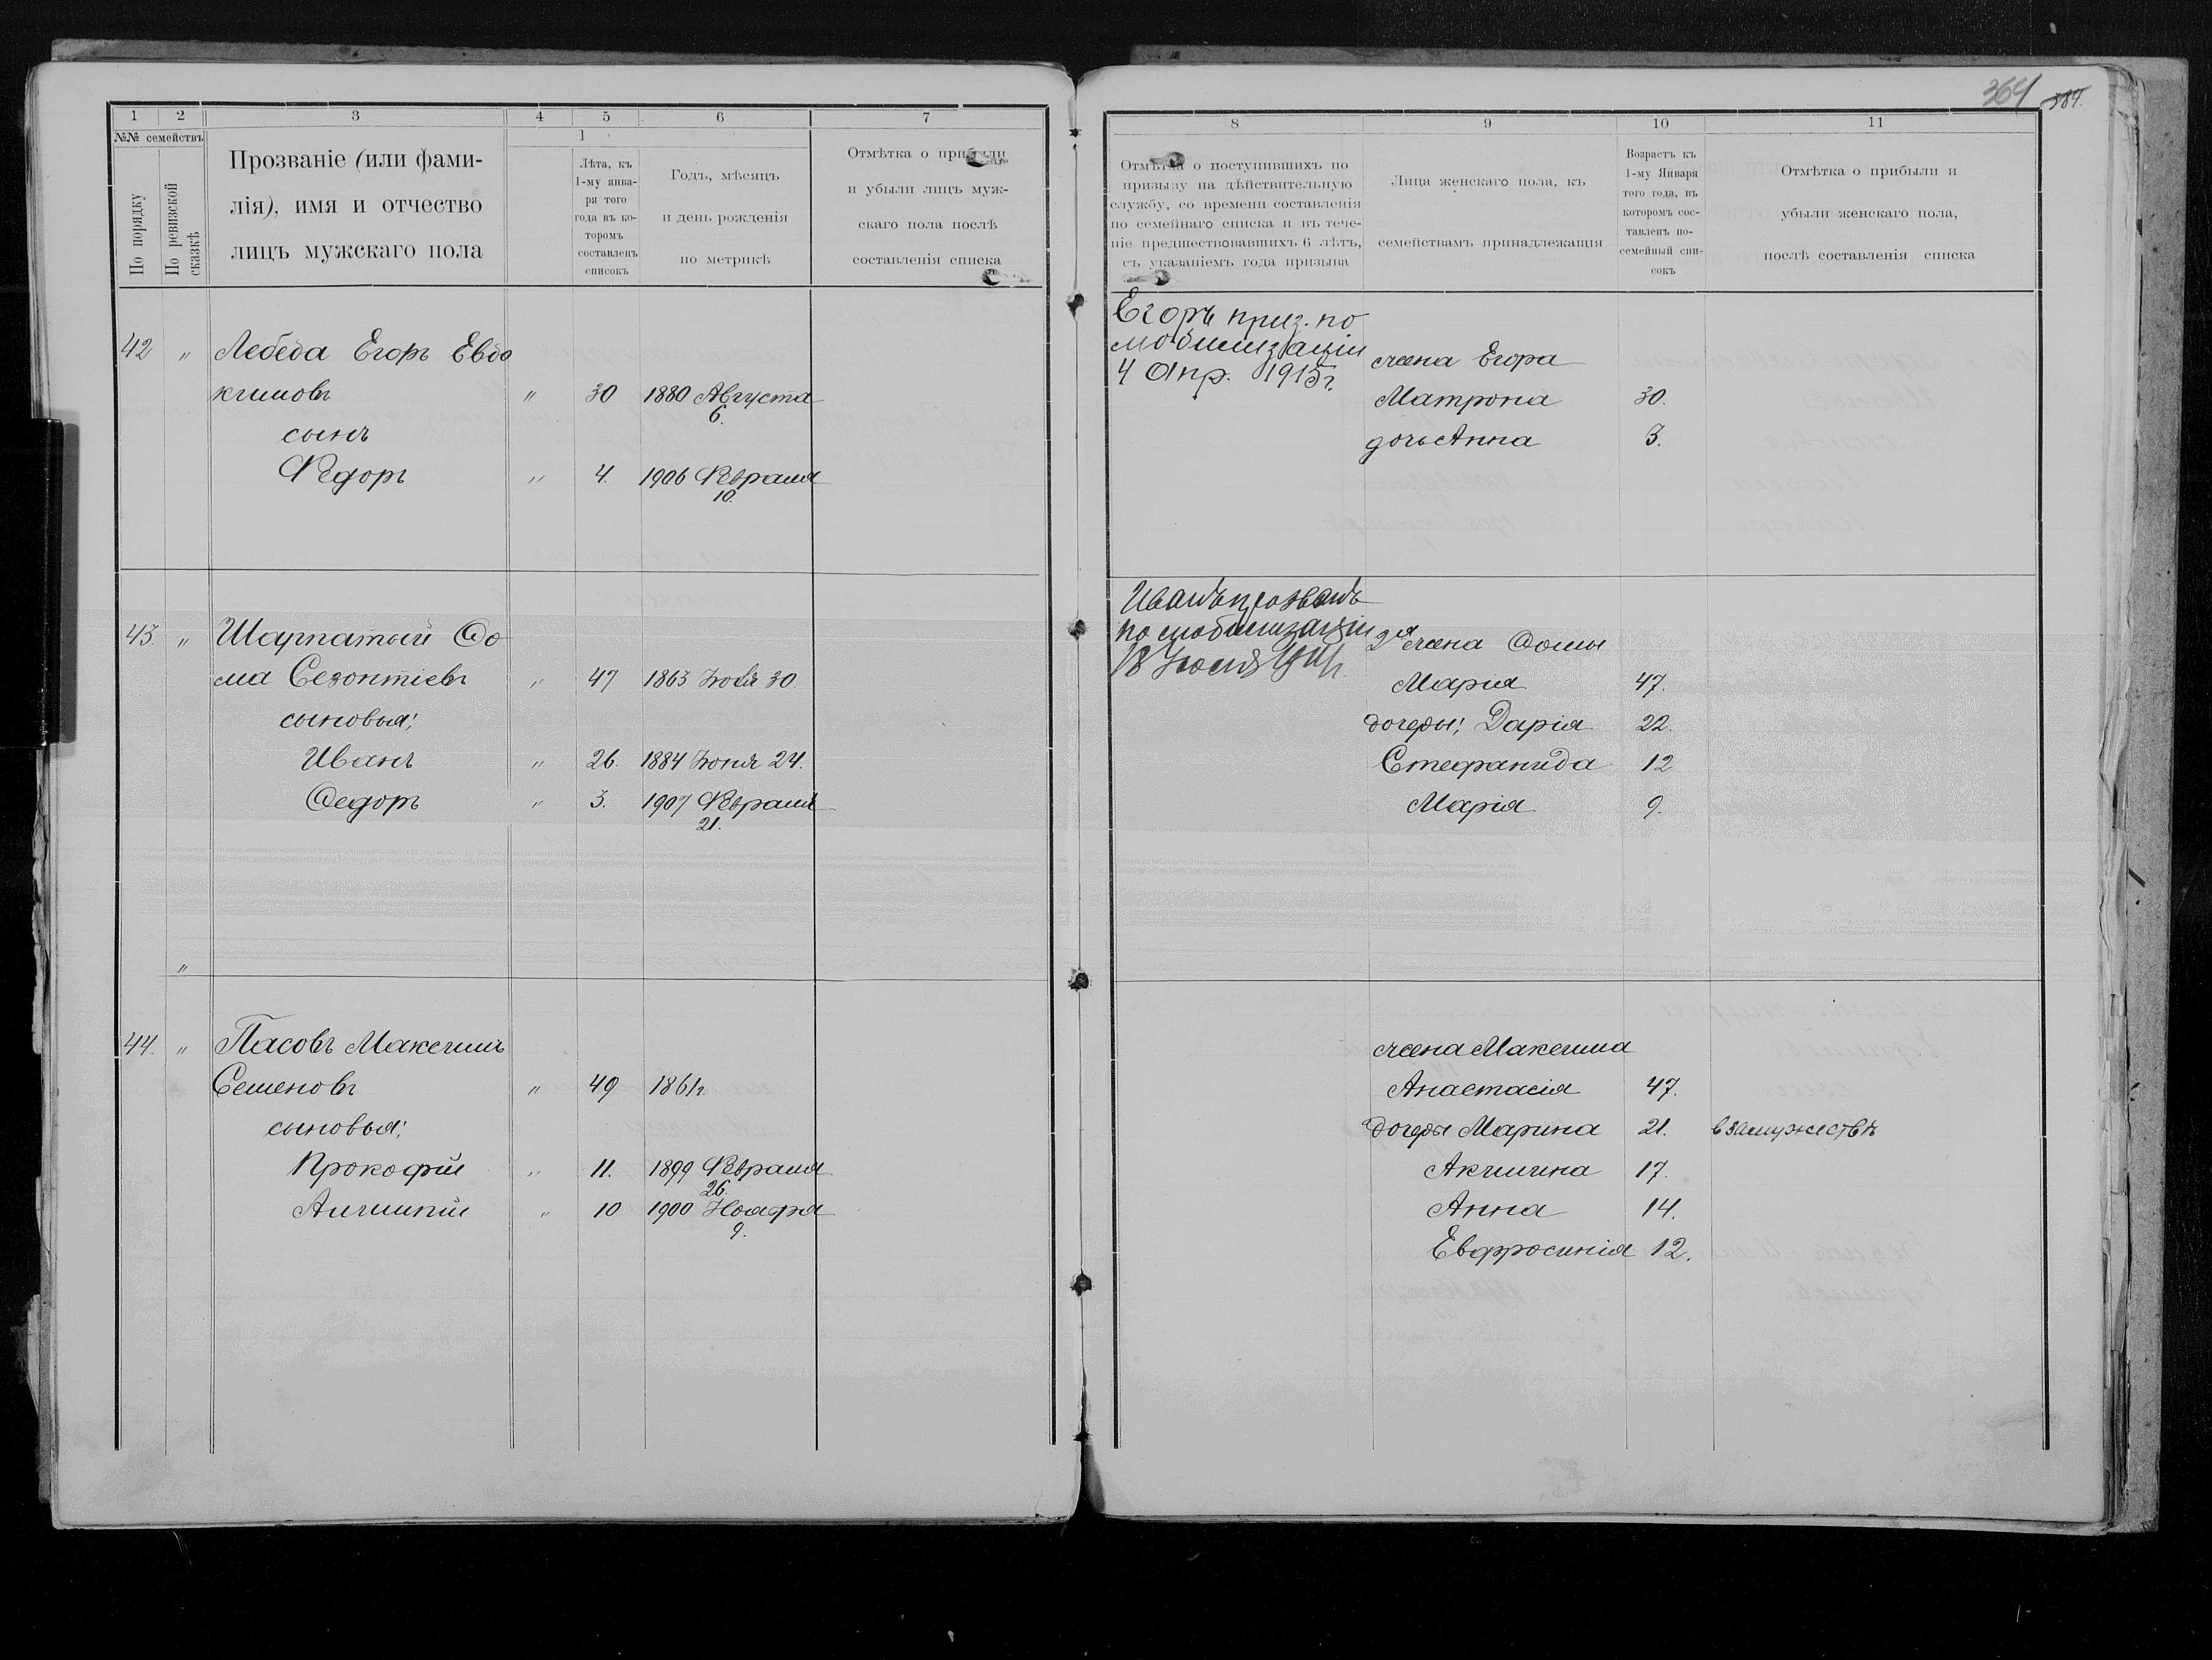 364 384.
1 2 3 4 5 6 7
№№ семействъ
По порядку
По ревизской сказкѣ
Прозваніе (или фами-
лія), имя и отчество
лицъ мужскаго пола
1
Лѣта, къ
1-му янва-
ря того
года въ ко-
торомъ
составленъ
списокъ
Годъ, мѣсяцъ
и день рожденія
по метрикѣ
Отмѣтка о прибыли
и убыли лицъ муж-
скаго пола послѣ
составленія списка
42 " Лебеда Егоръ Евдо
кимовъ " 30 1880 Августа
6.
сынъ
Ѳедоръ " 4. 1906 Февраля
10.
43. " Шарпатый Ѳо
ма Созонтіевъ " 47 1863 Іюня 30
сыновья:
Иванъ " 26. 1884 Іюня 24.
Ѳедоръ " 3. 1907 Февраля
21.
"
44. " Пасовъ Максимъ
Семеновъ " 49 1861г.
сыновья:
Прокофій " 11. 1899 Февраля
26.
Алимпій " 10 1900 Ноября
9.
8 9 10 11
Отмѣтка о поступившихъ по
призызу на дѣйствительную
службу, со времени составленія
по семейнаго списка и въ тече-
ніе предшествовавшихъ 6 лѣтъ,
съ указаніемъ года призыва
Лица женскаго пола, къ
семействамъ принадлежащія
Возрастъ къ
1-му Января
того года, въ
которомъ сос-
тавленъ по-
семейный спи-
сокъ
Отмѣтка о прибыли и
убыли женскаго пола,
послѣ составленія списка
Егоръ приз. по
мобилизаціи
4 Апр. 1915г.
жена Егора
Матрона 30.
дочь Анна 3.
Иванъ призванъ
по мобилизаціи
18 Іюля 1914г.
2я жена Ѳомы
Марія 47.
дочеры: Дарія 22.
Стефанида 12
Марія 9.
жена Максима
Анастасія 47.
дочеры Марина 21. в замужествѣ
Акилина 17.
Анна 14.
Евфросинія 12.